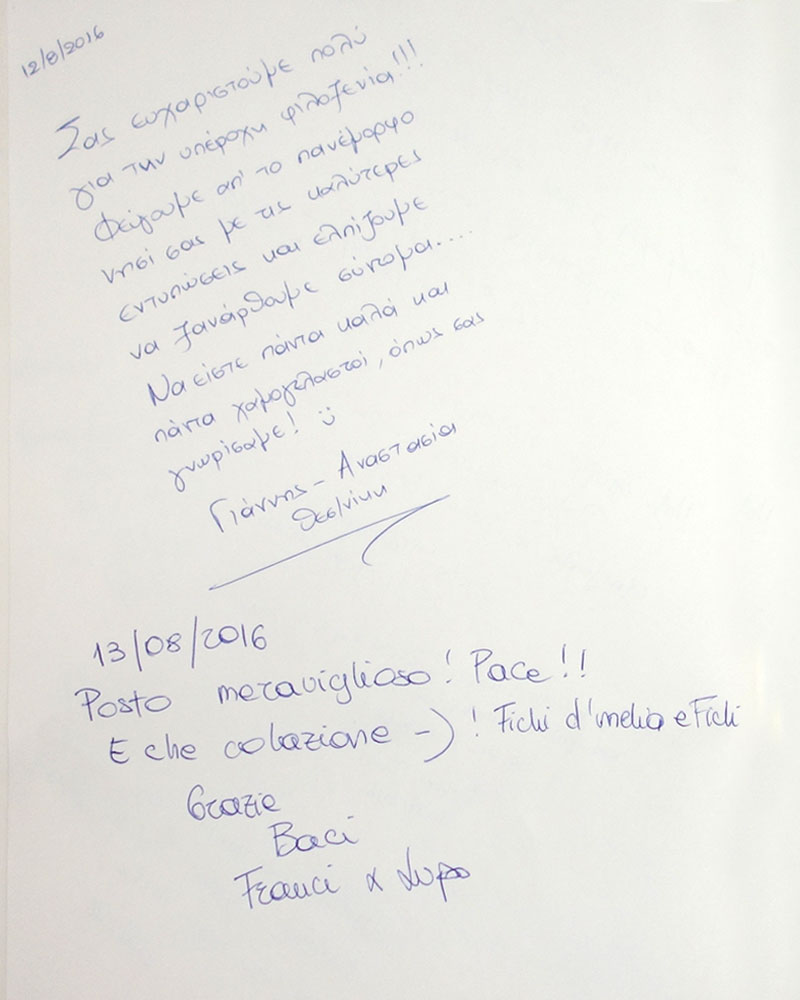 12/8/2016
Σας ευχαριστούμε πολύ
για την υπέροχη φιλοξενία!!!
Φεύγουμε απ' το πανέμορφο
νησί σας με τις καλύτερες
εντυπώσεις και ελπίζουμε
να ξανάρθουμε σύντομα....
Να είστε πάντα καλά και
πάντα χαμογελαστοί, όπως σας
γνωρίσαμε! ü
Γιάννης - Αναστασία
Θεσ/νίκη
13/08/2016
Posto meraviglioso! Pace!!
E che colazione -) ! Fichi d'india e Fichi
Grazie
Baci
Franci & Lupo